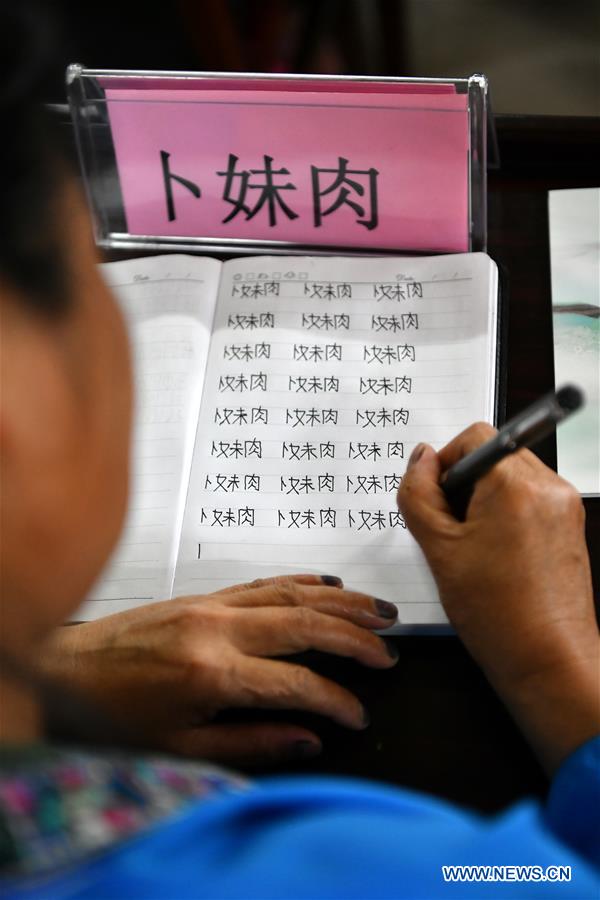 卜妹肉
Date / /
Date / /
卜妹肉 卜妹肉 卜妹肉
卜妹肉 卜妹肉 卜妹肉
卜妹肉 卜妹肉 卜妹肉
卜妹肉 卜妹肉 卜妹肉
卜妹肉 卜妹肉 卜妹肉
卜妹肉 卜妹肉 卜妹肉
卜妹肉 卜妹肉 卜妹肉
卜妹肉 卜妹肉 卜妹肉
WWW.NEWS.CN